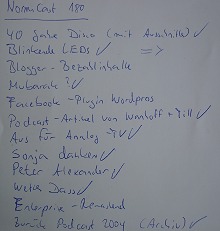 NormCast 180
40 Jahre Disco (mit Ausschnitte) ✓
Blinkende LEDs ✓ =>
Blogger - Bezahlinhalte
Mubarak ? ✓
Facebook - Plugin Wordpress
Podcast - Artikel von Wonhoff + Till ✓
Aus für Analog - TV ✓
Sonja danken ✓
Peter Alexander ✓
Wetten Dass ✓
Enterprise - Remastered
Zurück Podcast 2004 (Archiv) ✓